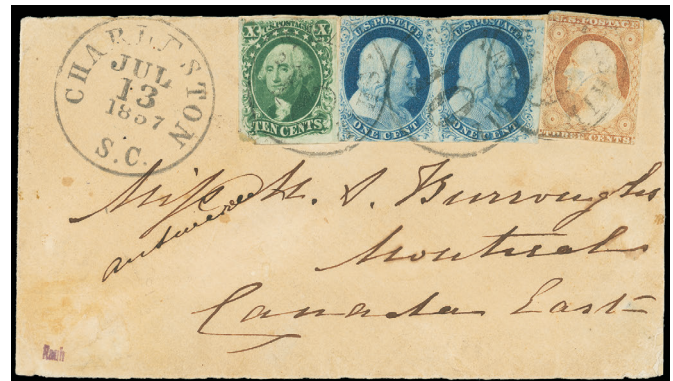 CHARLESTON
JUL
13
1857
S.C.
U.S. POSTAGE
X X
TEN CENTS
U.S. POSTAGE
ONE CENT
U.S. POSTAGE
ONE CENT
U.S. POSTAGE
THREE CENTS
Miss H. S. Burroughs
answered
Montreal
Canada East